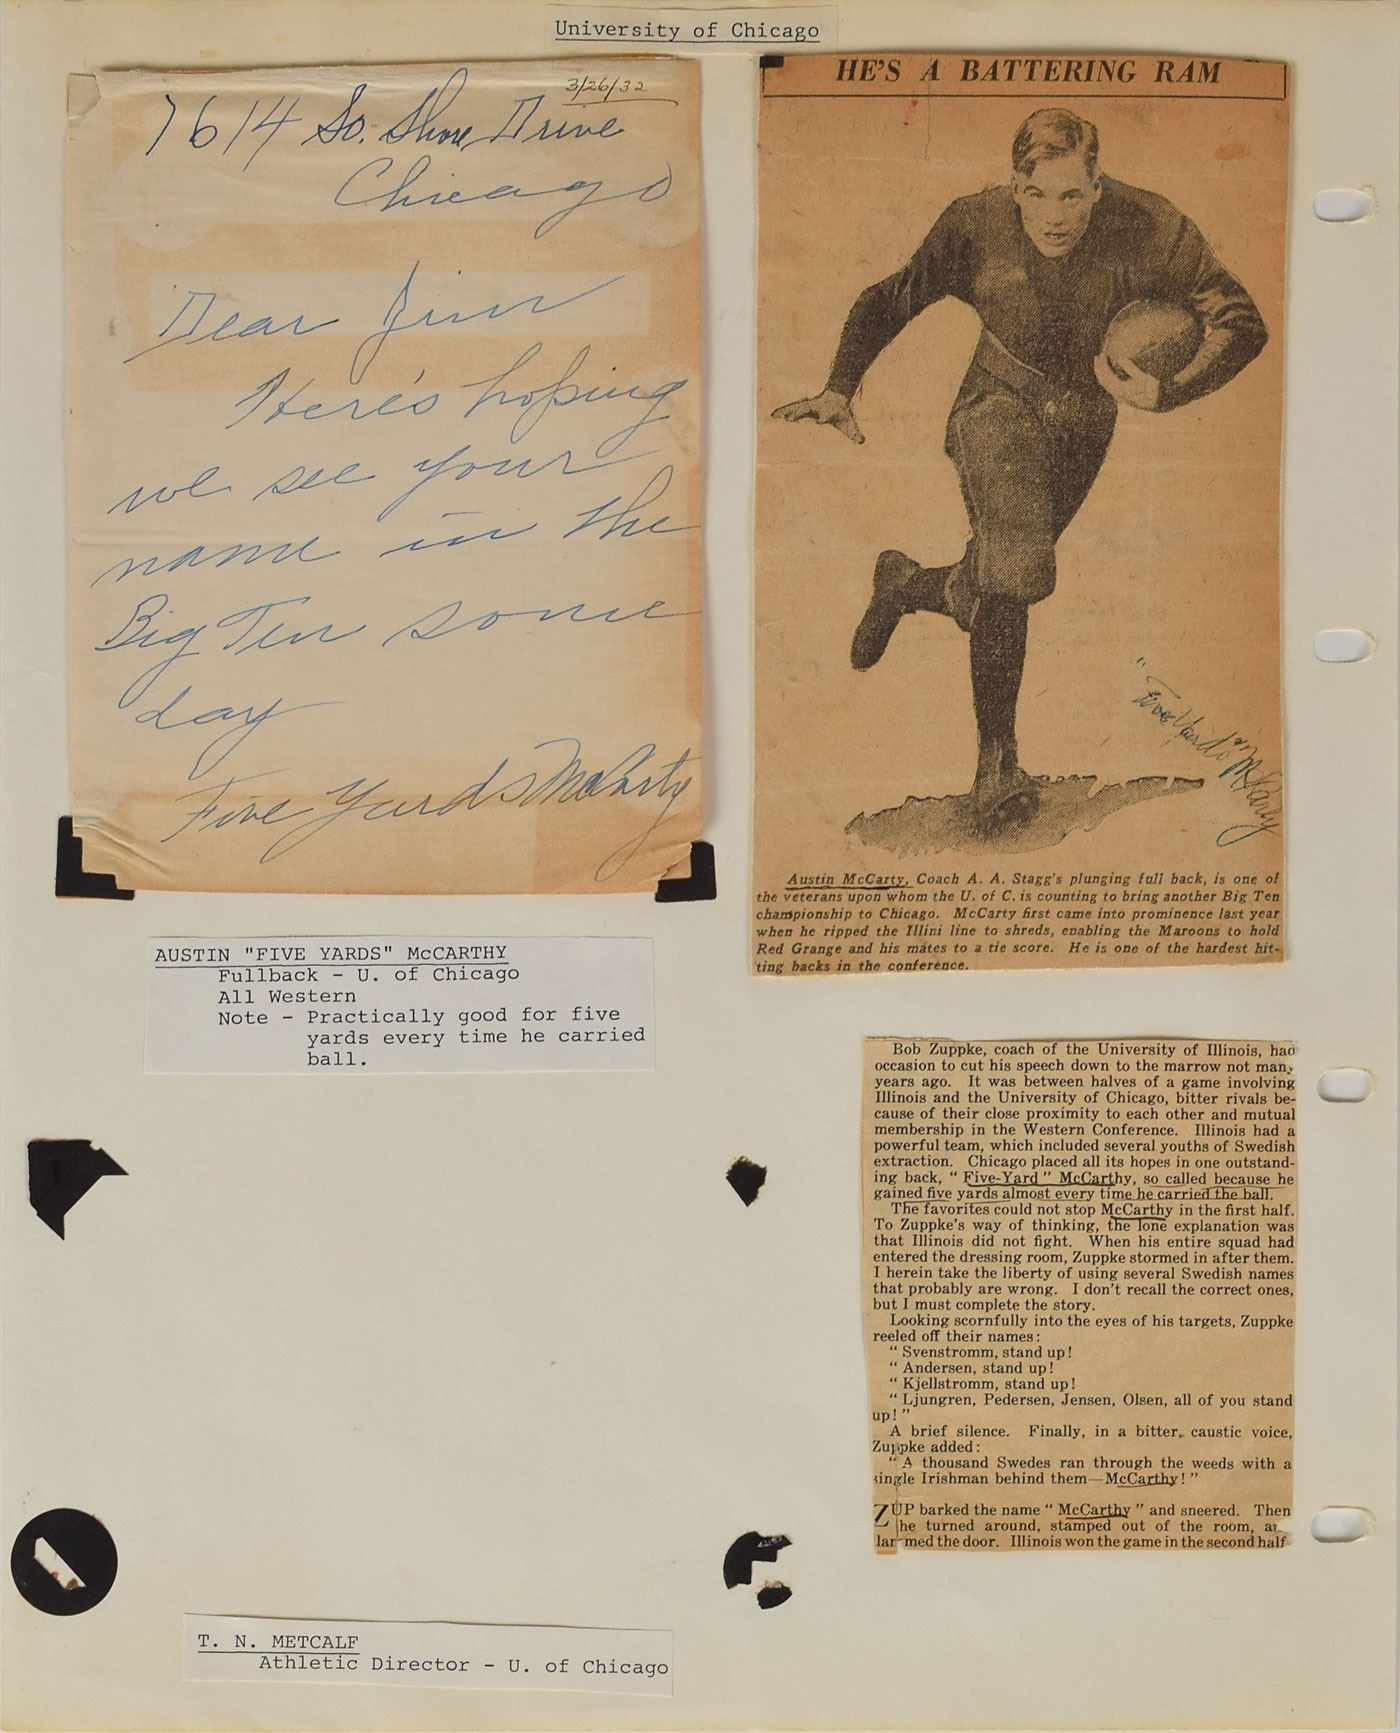 University of Chicago
3/26/32
7614 So. Shore Drive
Chicago
Dear Jim
Here's hoping
we see your
name in the
Big Ten some
day
Five Yards McCarty
HE'S A BATTERING RAM
"Five Yards" McCarty
Austin McCarty, Coach A. A. Stagg's plunging full back, is one of
the veterans upon whom the U. of C. is counting to bring another Big Ten
championship to Chicago. McCarty first came into prominence last year
when he ripped the Illini line to shreds, enabling the Maroons to hold
Red Grange and his mates to a tie score. He is one of the hardest hit-
ting backs in the conference.
AUSTIN "FIVE YARDS" McCARTHY
Fullback - U. of Chicago
All Western
Note - Practically good for five
yards every time he carried
ball.
Bob Zuppke, coach of the University of Illinois, had
occasion to cut his speech down to the marrow not many
years ago. It was between halves of a game involving
Illinois and the University of Chicago, bitter rivals be-
cause of their close proximity to each other and mutual
membership in the Western Conference. Illinois had a
powerful team, which included several youths of Swedish
extraction. Chicago placed all its hopes in one outstand-
ing back, "Five-Yard" McCarthy, so called because he
gained five yards almost every time he carried the ball.
The favorites could not stop McCarthy in the first half.
To Zuppke's way of thinking, the lone explanation was
that Illinois did not fight. When his entire squad had
entered the dressing room, Zuppke stormed in after them.
I herein take the liberty of using several Swedish names
that probably are wrong. I don't recall the correct ones,
but I must complete the story.
Looking scornfully into the eyes of his targets, Zuppke
reeled off their names:
"Svenstromm, stand up!
"Andersen, stand up!
"Kjellstromm, stand up!
"Ljungren, Pedersen, Jensen, Olsen, all of you stand
up!"
A brief silence. Finally, in a bitter, caustic voice,
Zuppke added:
"A thousand Swedes ran through the weeds with a
single Irishman behind them—McCarthy!"
ZUP barked the name "McCarthy" and sneered. Then
he turned around, stamped out of the room, a
med the door. Illinois won the game in the second half
T. N. METCALF
Athletic Director - U. of Chicago